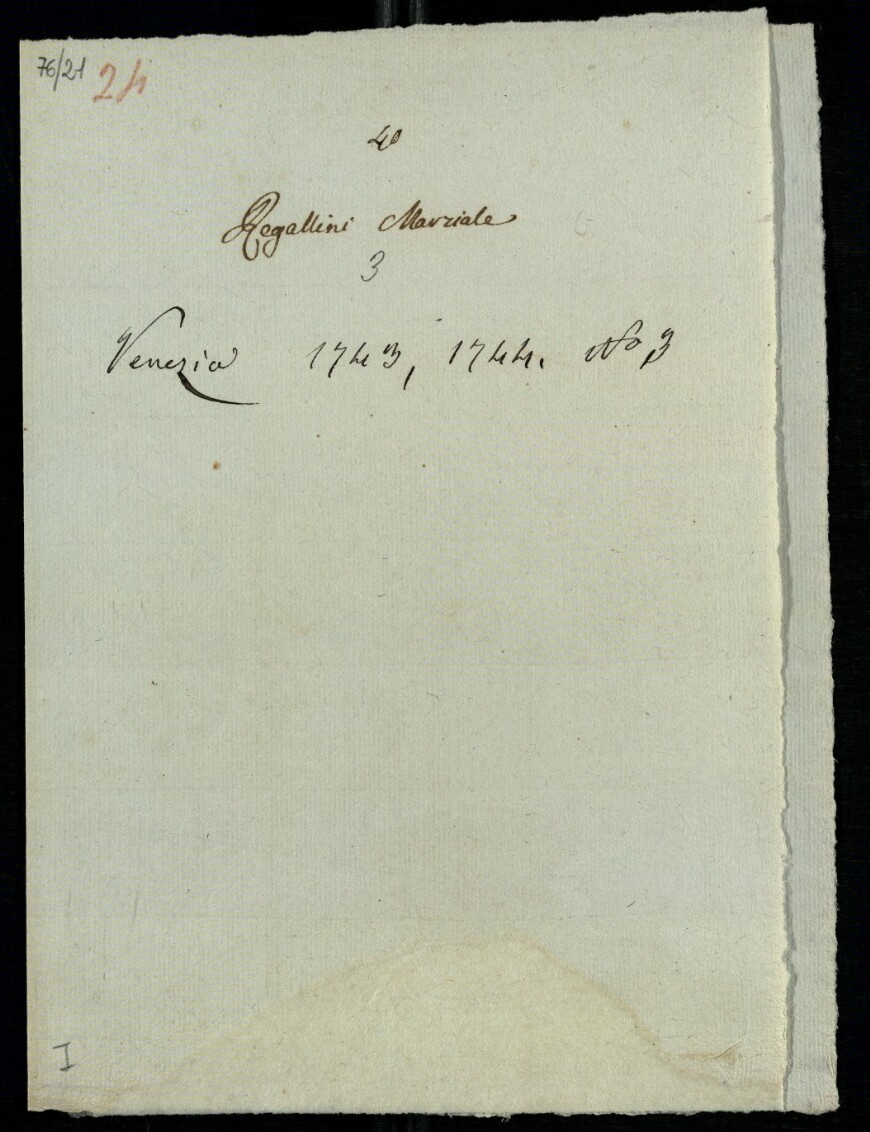 76/21 24
40
Regallini Marziale
3
Venezia 1743, 1744. No 3
I